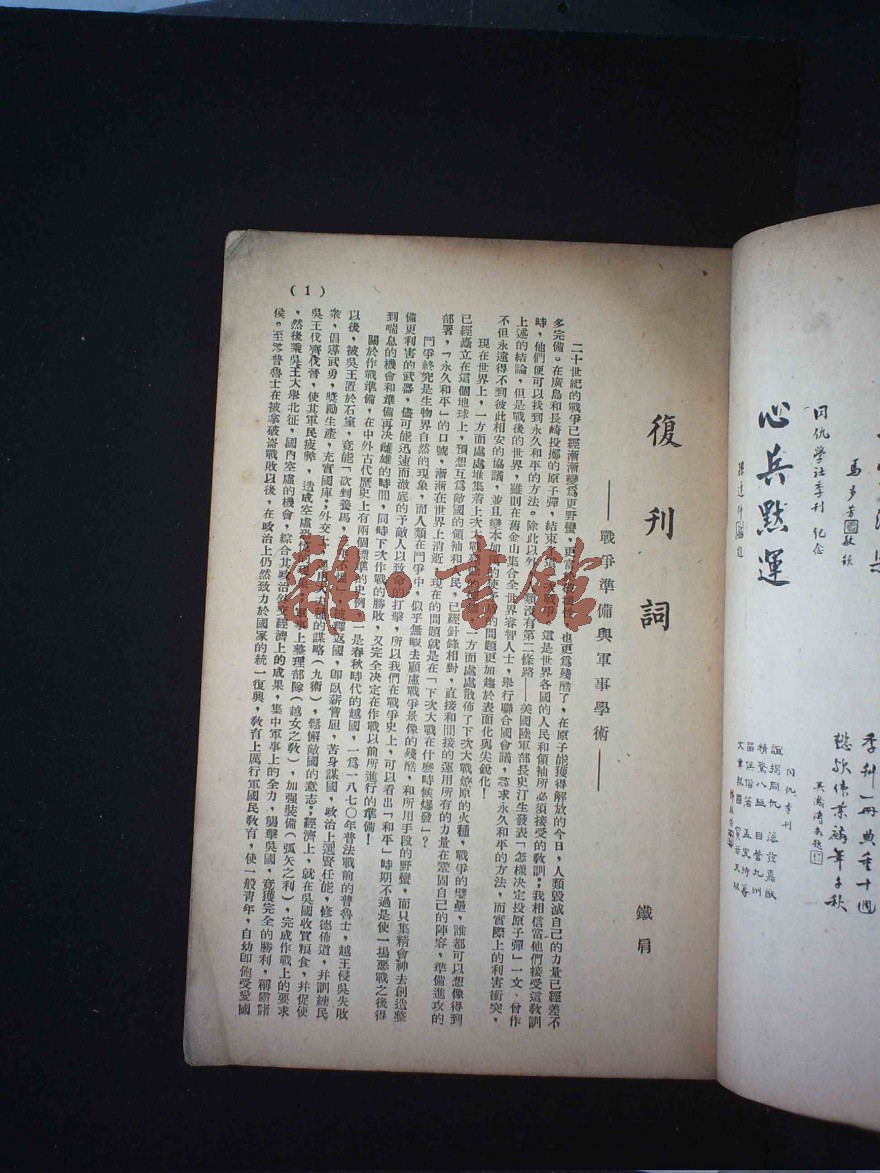 復刊詞
——戰爭準備與軍事學術——
鐵肩
二十世紀的戰爭已經漸漸變為更野蠻，更富於破壞性，也更為殘酷了，在原子能獲得解放的今日，人類毀滅自己的力量已經差不
多完備。在廣島和長崎投擲的原子彈，結束了這次戰爭，這是世界各國的人民和領袖所必須接受的教訓；我相信當他們接受這教訓
時，他們便可以找到永久和平的方法。除此以外，人類沒有第二條路——美國陸軍部長史汀生發表「怎樣決定投原子彈」一文，曾作
上述的結論，但是戰後的世界，雖則在舊金山集合全世界睿智人士，舉行聯合國會議，尋求永久和平的方法，而實際上的利害衝突，
不但永遠得不到彼此相安的協議，並且變本加厲的使矛盾的問題更加趨於表面化與尖銳化！
現在世界上，一方面處處堆集着上次大戰 一方面處處散佈了下次大戰燎原的火種，戰爭的壁壘，誰都可以想像得到
已經矗立在這個地球上，預想互為敵國的領袖和人民，已經針鋒相對，直接和間接的運用所有的力量在鞏固自己的陣容，準備進攻的
部署，「永久和平」的口號，漸漸在世界上消逝，現在的問題就是在「下次大戰在什麼時候爆發」？
鬥爭終究是生物界自然的現象，而人類在鬥爭中，似乎無暇去顧慮戰爭景像的殘酷，和所用手段的野蠻，而只集精會神去創造整
備更利害的武器，儘可能迅速而澈底的予敵人以致命的打擊，所以我們在戰爭史上，可以看出「和平」時期不過是使一場惡戰之後得
到喘息的機會和準備再決雌雄的時間，同時下次作戰的勝敗，又完全決定在作戰以前所進行的準備！
關於作戰準備，在中外古代歷史上有兩個標準的史例，一是春秋時代的越國，一為一八七〇年普法戰前的普魯士，越王侵吳失敗
以後，被吳王置於石室，竟能「砍剉養馬， 」，被釋返國，卽臥薪嘗胆，苦身謀國，政治上選賢任能，修德佈道，幷訓練民
衆，倡導武勇，獎勵生產，充實國庫；外交上 的謀略（九術），鬆解敵國的意志；經濟上，就在吳國收買糧食，幷促使
吳王伐齊伐晉，使其軍民疲弊，造成空虛恐慌 軍事上整理部隊（越女之教），加強裝備（弧矢之利），完成作戰上的要求
，然後乘吳王大舉北征，國內空虛的機會，綜合其政治外交經濟上的成果，集中軍事上的全力，襲擊吳國，竟獲完全的勝利，稱霸諸
侯。至於普魯士在被拿破崙戰敗以後，在政治上仍然致力於國家的統一復興，教育上厲行軍國民教育，使一般青年，自幼卽飽受愛國
（1）
同仇學社季刊 紀念
心兵默運
馬步芳 敬題
季刊一冊典重十週
同仇季刊